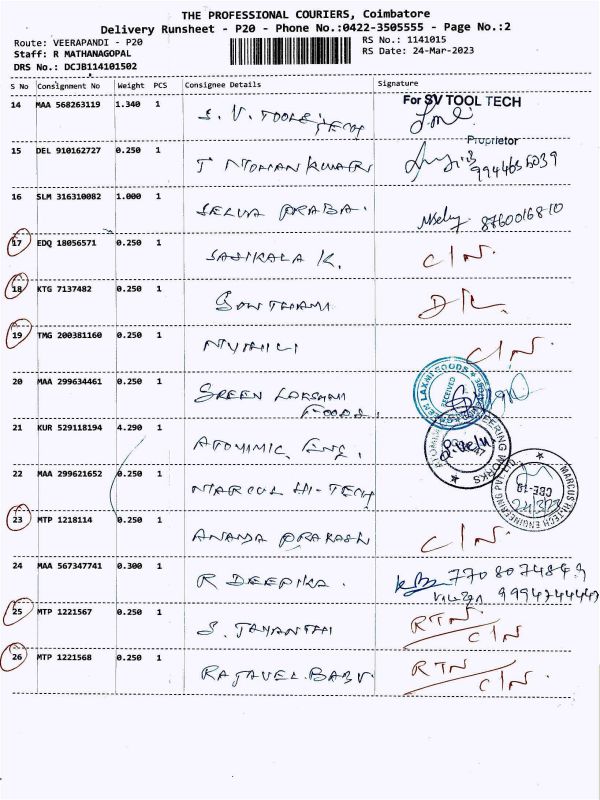 THE PROFESSIONAL COURIERS, Coimbatore
Delivery Runsheet - P20 - Phone No.:0422-3505555 - Page No.:2
Route: VEERAPANDI - P20
Staff: R MATHANAGOPAL
DRS No.: DCJB114101502
RS No.: 1141015
RS Date: 24-Mar-2023
S No Consignment No Weight PCS Consignee Details Signature
14 MAA 568263119 1.340 1 S. V. TOOLS TECH For SV TOOL TECH
Proprietor
15 DEL 910162727 0.250 1
16 SLM 316310082 1.000 1 SELVA PRABA. 8760016810
17 EDQ 18056571 0.250 1 SASIKALA K. C/N.
18 KTG 7137482 0.250 1 GOWTHAMI D/L.
19 TMG 200381160 0.250 1 MYTHILI C/N.
20 MAA 299634461 0.250 1 SREEN LAKSHMI
FOODS.
21 KUR 529118194 4.290 1 ATOMIMIC ENG.
22 MAA 299621652 0.250 1 MARCUS HI-TECH
MARCUS HI-TECH ENGINEERING PVT LTD
23 MTP 1218114 0.250 1 ANANDA PRAKASH C/N.
24 MAA 567347741 0.300 1 R DEEPIKA. 7708074843
25 MTP 1221567 0.250 1 S. JAYANTHI RTN
C/N
26 MTP 1221568 0.250 1 RAJAVEL.BABU. RTN
C/N.